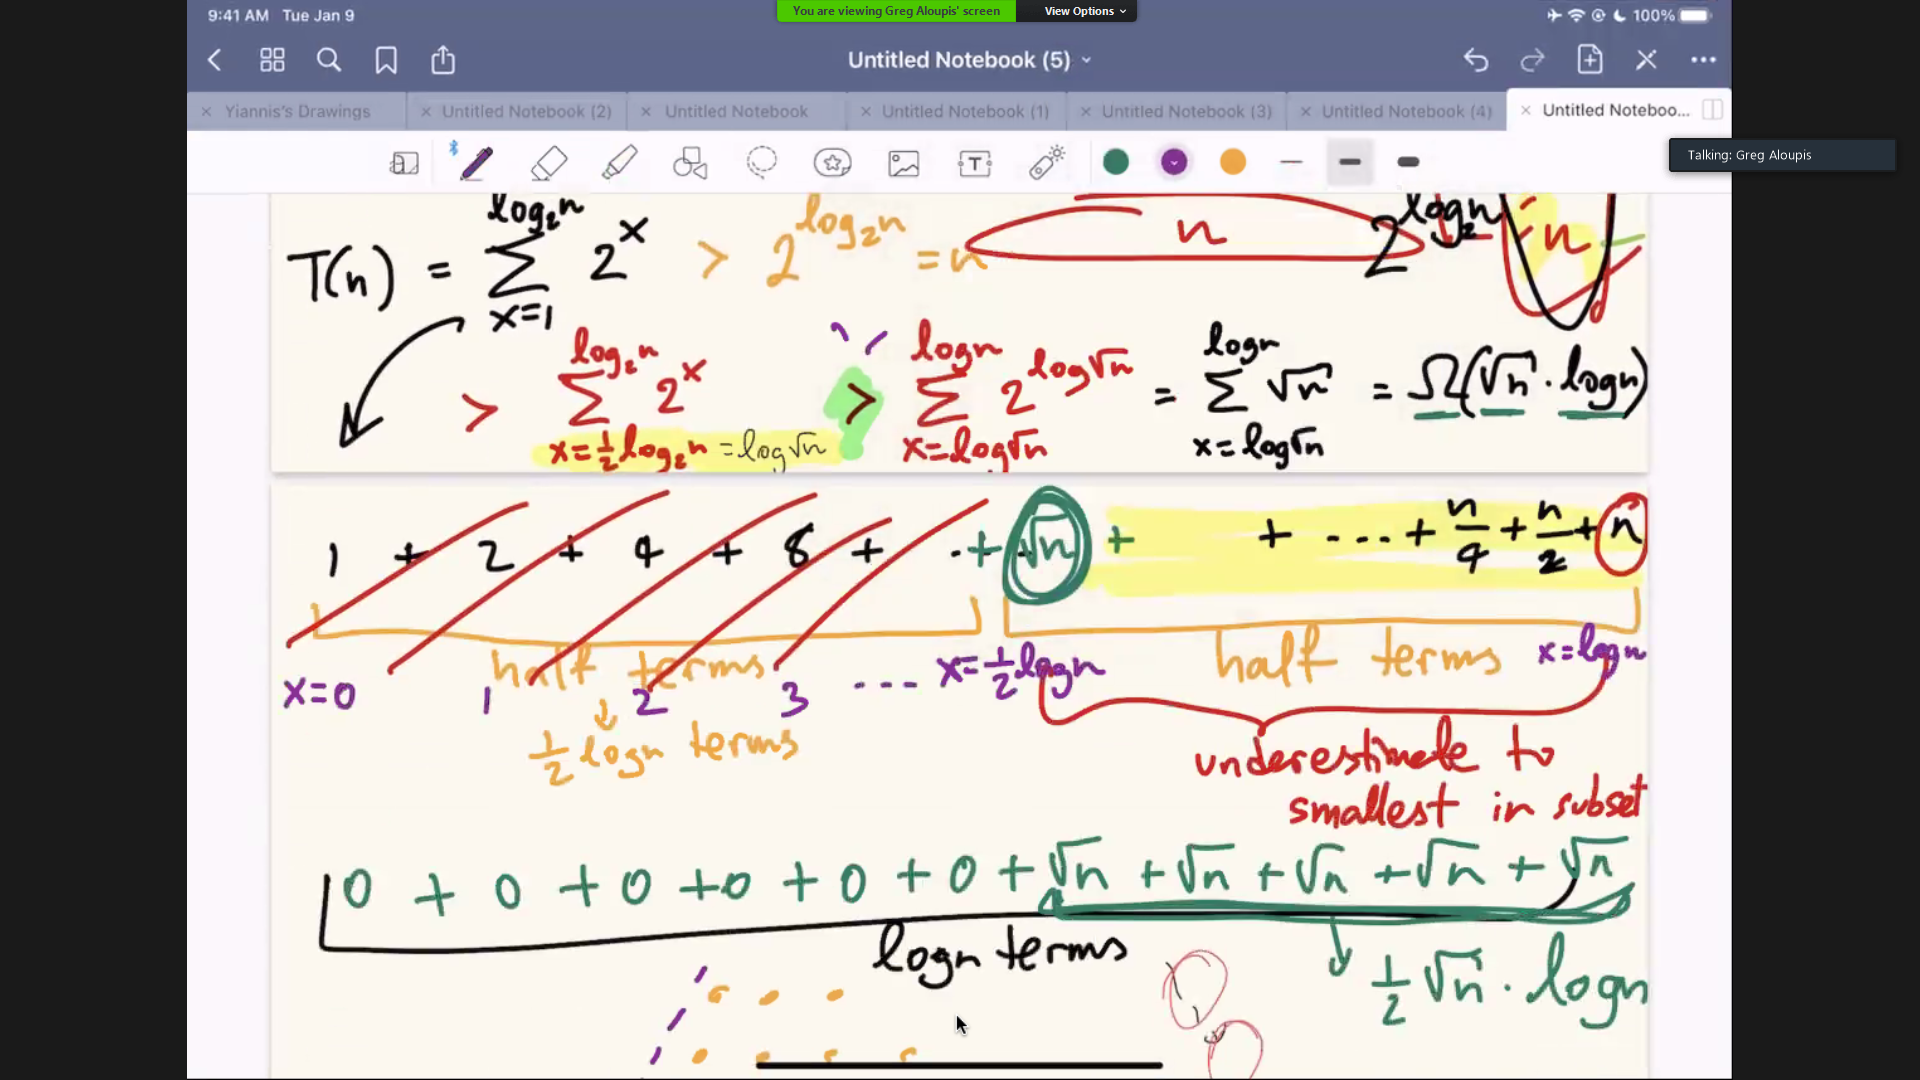 9:41 AM Tue Jan 9
You are viewing Greg Aloupis' screen View Options
100%
Untitled Notebook (5)
Yiannis's Drawings Untitled Notebook (2) Untitled Notebook Untitled Notebook (1) Untitled Notebook (3) Untitled Notebook (4) Untitled Noteboo...
Talking: Greg Aloupis
T(n) = ∑_{x=1}^{log₂n} 2^x > 2^{log₂n} = n
n
2^{log₂n}
n
> ∑_{x=½log₂n = log√n}^{log₂n} 2^x > ∑_{x=log√n}^{logn} 2^{log√n} = ∑_{x=log√n}^{logn} √n = Ω(√n · logn)
1 + 2 + 4 + 8 + ... + √n + + ... + n/4 + n/2 + n
half terms half terms
x=0 1 2 3 ... x=½logn x=logn
½ logn terms
underestimate to
smallest in subset
0 + 0 + 0 + 0 + 0 + 0 + √n + √n + √n + √n + √n
logn terms
½ √n · logn